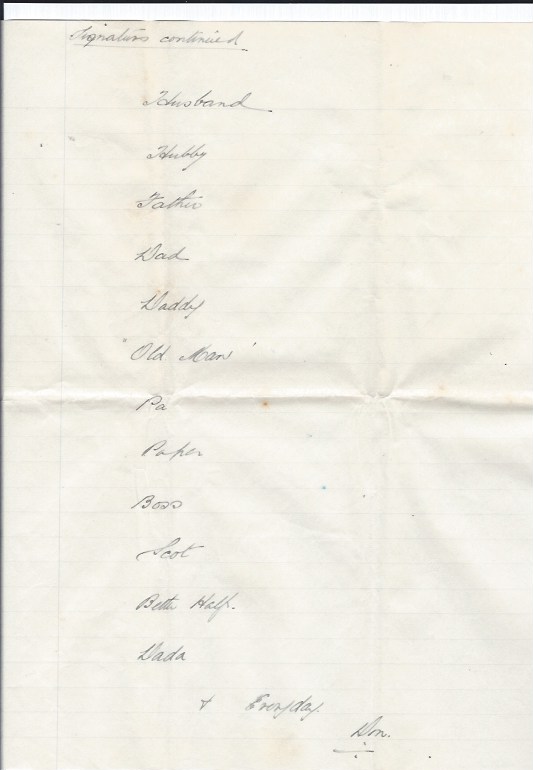 Signatures continued
Husband
Hubby
Father
Dad
Daddy
"Old Man"
Pa
Paper
Boss
Scot
Better Half.
Dada
& Everyday
Don.